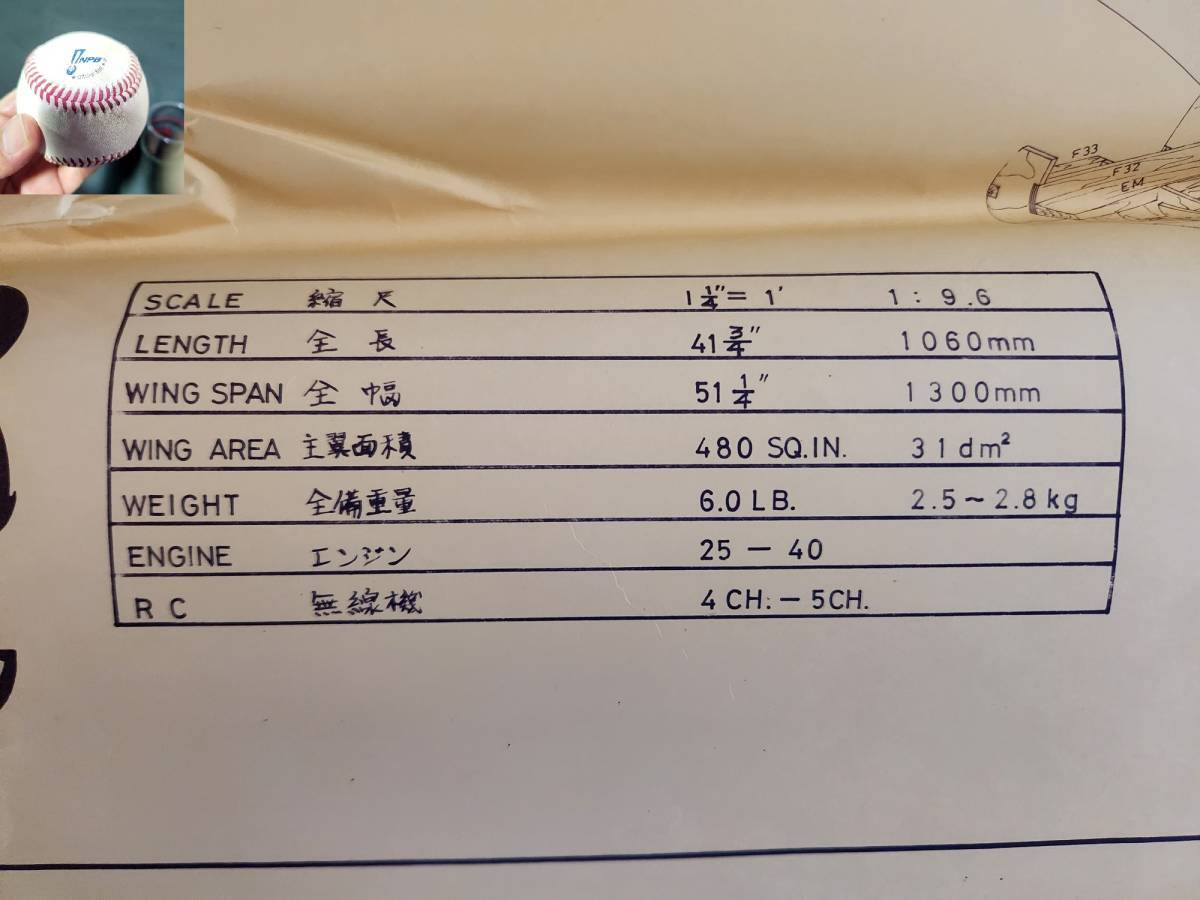 NPB
F33
F32
EM
SCALE 縮尺 1 1/4" = 1' 1 : 9.6
LENGTH 全長 41 3/4" 1060mm
WING SPAN 全幅 51 1/4" 1300mm
WING AREA 主翼面積 480 SQ.IN. 31dm²
WEIGHT 全備重量 6.0 LB. 2.5~2.8kg
ENGINE エンジン 25 — 40
RC 無線機 4 CH. — 5CH.